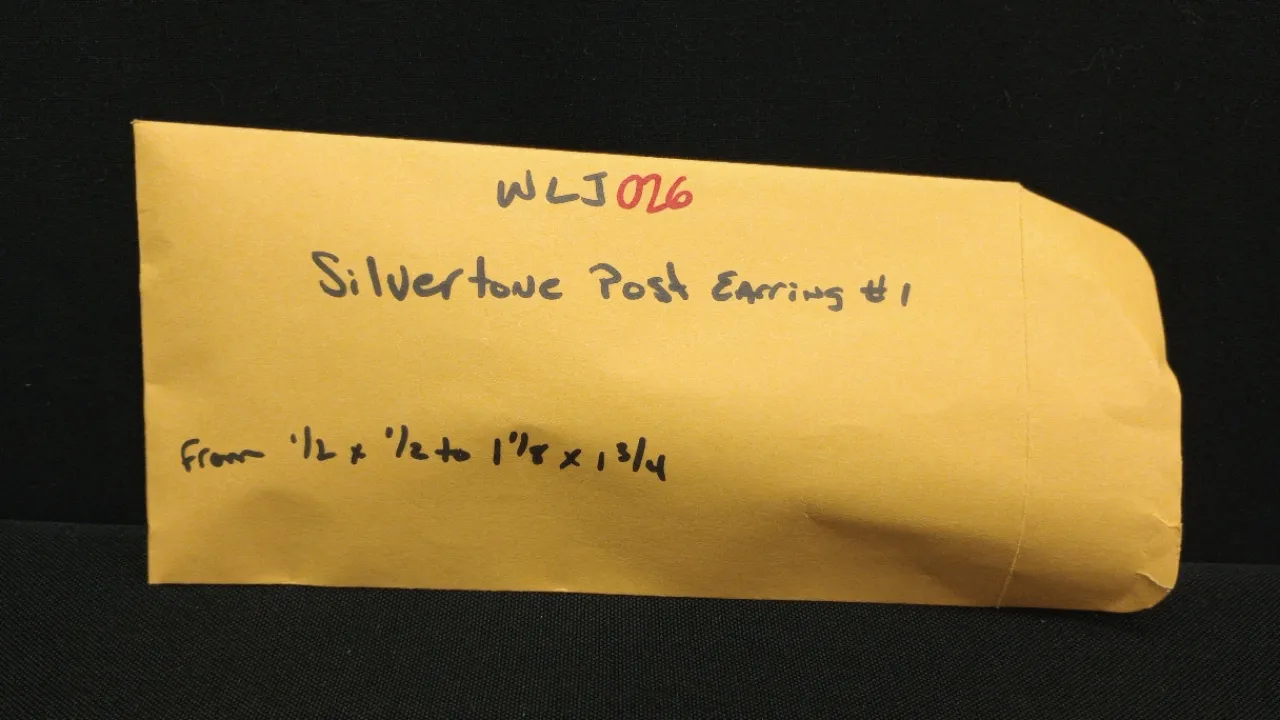 WLJ026
Silvertone Post Earring #1
From 1/2 x 1/2 to 1 1/8 x 1 3/4